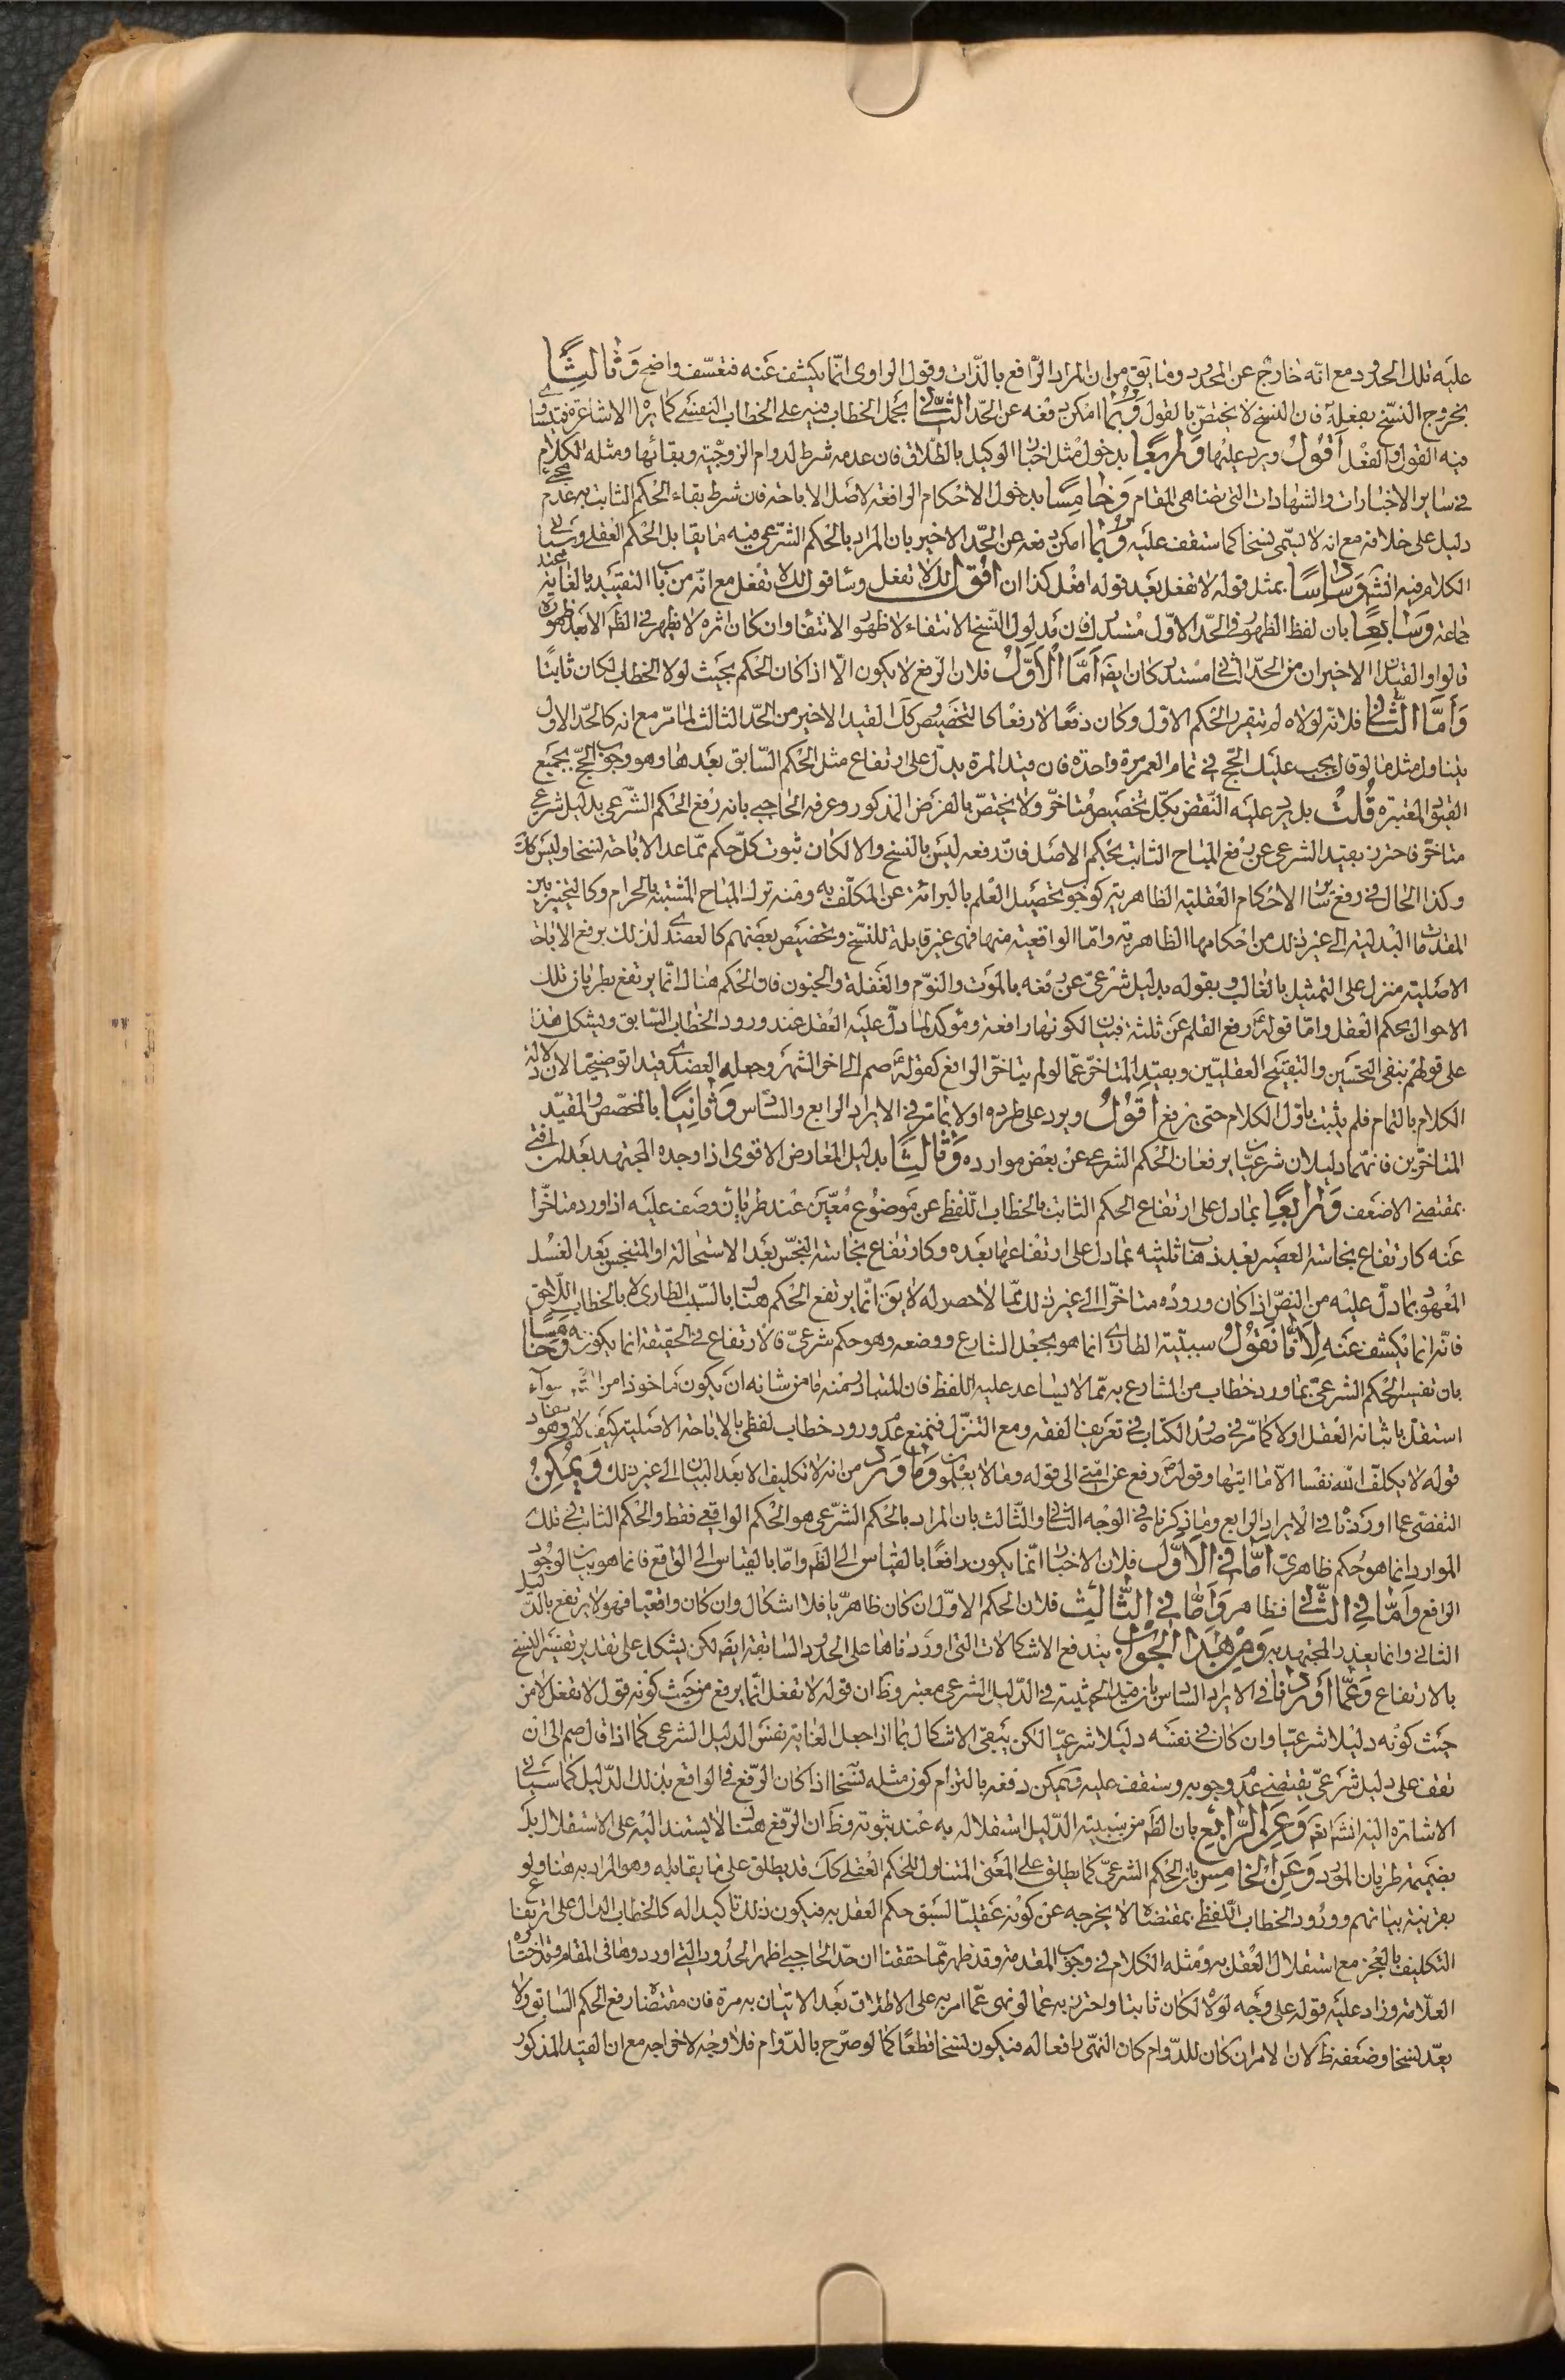 عليه تلك الحدود مع انّه خارج عن المحدود وما يق من ان المراد الرّافع بالذّات وقول الراوى انّما يكشف عنه فتعسّف واضح وَثَالِثًا
بخروج النسّخ بفعله فان النسخ لا يختصّ بالقول وَرُبَّما امكن دفعه عن الحّد الثّاني بحمل الخطاب فيه على الخطاب النفسى كما يراه الاشاعرة فيتساوى
فيه القول والفعل أقُولُ ويرد عليها وَرابِعًا بدخول مثل اخبار الوكيل بالطّلاق فان عدمه شرط لدوام الزوجيّة وبقائها ومثله الكلام
فى ساير الاخبارات والشهادات التى تضاهى المقام وَخَامِسًا بدخول الاحكام الرافعة لاصل الاباحة فان شرط بقاء الحكم الثابت به عدم مجئ
دليل على خلافه مع انه لا يسمّى نسخا كما ستقف عليه وَرُبَّما امكن دفعه عن الحّد الاخير بان المراد بالحكم الشرّعى فيه ما يقابل الحكم العقلى وسياتى
الكلام فيه انشَ وَسادِسًا بمثل قوله لا تفعل بعد قوله افعل كذا ان اقول لك لا تفعل وساقول لك لا تفعل مع انّه من باب التقييد بالغاية عند
جماعة وَسَابِعًا بان لفظ الظهور فى الحّد الاوّل مستدرك فان مدلول النّسخ الانتفاء لا ظهور الانتفاء وان كان اثره لا يظهر فى الظَ الا بعد ظهوره
قالوا والقيدان الاخيران من الحّد الثانى مستدركان ايضَ أمّا الأوّلُ فلان الرّفع لا يكون الّا اذا كان الحكم بحيث لولا الخطاب لكان ثابتًا
وَأمَّا الثّانى فلانّه لولاه لم يتقرر الحكم الاوّل وكان دفعًا لا رفعًا كالتخصيص وكك القيد الاخير من الحّد الثالث لما مرّ مع انه كالحّد الاول
يتناول مثل ما لو قال يجب عليك الحّج فى تمام العمر مرة واحدة فان قيد المرة يدلّ على ارتفاع مثل الحكم السّابق بعدها وهو وجوب الحجّ بجميع
القيود المعتبرة قُلتُ بل يرد عليه النّقض بكلّ تخصيص متاخّر ولا يختصّ بالفرض المذكور وعرفه الحاجبى بانه رفع الحكم الشّرعى بدليل شرعى
متاخّر فاحترز بقيد الشرعى عن رفع المباح الثابت بحكم الاصل فانّ دفعه ليس بالنسخ والا لكان ثبوت كلّ حكم ممّا عدا الاباحة نسخا وليس كك
وكذا الحال فى رفع ساير الاحكام العقليّة الظاهريّة كوجوب تحصيل العلم بالبرائة عن المكلّف به ومنه ترك المباح المشتبه بالحرام وكالتخيير بين
المقدّمات البدليّة الى غير ذلك من احكامها الظاهريّة وامّا الواقعيّة منها فهى غير قابلة للنّسخ وتخصيص بعضهم كالعضدى لذلك برفع الاباحة
الاصليّة منزل على التمثيل بالغالب وبقوله بدليل شرعىّ عن رفعه بالموت والنوّم والغفلة والجنون فان الحكم هناك انّما يرتفع بطريان تلك
الاحوال بحكم العقل وامّا قوله رفع القلم عن ثلثة فبيان لكونها رافعة ومؤكد لما دلّ عليه العقل عند ورود الخطاب السّابق ويشكل هذا
على قولهم بنفى التحسين والتقبيح العقليّين وبقيد المتاخّر عمّا لو لم يتاخّر الرافع كقوله صم الى اخر الشهر وجعله العضدى قيدا توضيحيا لان دلالة
الكلام بالتمام فلم يثبت باوّل الكلام حتى يرفع أقُولُ ويرد على طرده اولا بما مرّ فى الايراد الرابع والسّادس وَثَانِيًا بالمخصّص والمقيّد
المتاخّرين فانهّما دليلان شرعيّان يرفعان الحكم الشرعى عن بعض موارده وَثَالِثًا بدليل المعارض الاقوى اذا وجده المجتهد بعد ان افتى
بمقتضى الاضعف وَرَابِعًا بما دل على ارتفاع الحكم الثابت بالخطاب اللّفظى عن موضوع معيّن عند طريان وصف عليه اذا ورد متاخّرا
عنه كارتفاع نجاسة العصير بعد ذهاب ثلثيه بما دلّ على ارتفاعها بعده وكارتفاع نجاسة النجّس بعد الاستحالة او المتنجس بعد الغسل
المعهود بما دلّ عليه من النصّ اذا كان وروده متاخّرا الى غير ذلك ممّا لا حصر له لا يق انّما يرتفع الحكم هنا بالسّبب الطارى لا بالخطاب اللّاحق
فانّه انما يكشف عنه لِأنَّا نَقُولُ سببيّة الطارى انما هو بجعل الشارع ووضعه وهو حكم شرعىّ فالارتفاع فى الحقيقة انما يكون به وَخَامِسًا
بان تفسير الحكم الشرعىّ بما ورد خطاب من الشارع به ممّا لا يساعد عليه اللفظ فان المتبادر منه ما من شانه ان يكون ماخوذا من الشّ سوآء
استقلّ باثباته العقل اولا كما مّر فى صدر الكتاب فى تعريف الفقه ومع التنزّل فنمنع عدم ورود خطاب لفظى بالاباحة الاصليّة كيف لا وهو مفاد
قوله لا يكلّف اللّه نفسا الّا ما اتيها وقوله رفع عن امّتى الى قوله وما لا يعلمون وَمَا وَرَدَ من انه لا تكليف الا بعد البيان الى غير ذلك وَيُمكِنُ
التفصّى عما اوردنا فى الايراد الرابع وما ذكرنا فى الوجه الثانى والثّالث بان المراد بالحكم الشرّعى هو الحكم الواقعى فقط والحكم الثابت فى تلك
الموارد انما هو حكم ظاهرىّ أمّا فى الأوّل فلان الاخبار انّما يكون رافعًا بالقياس الى الظَ وامّا بالقياس الى الواقع فانما هو بيان لوجود
الواقع وَأمّا فى الثّانى فظاهر وَأمّا فى الثّالِث فلان الحكم الاوّل ان كان ظاهريّا فلا اشكال وان كان واقعيّا فهو لا يرتفع بالدّليل
الثانى وانما يعذر المجتهد به وَمِن هذَا الجَوابِ يندفع الاشكالات التى اوردناها على الحدود السّابقة ايضَ لكن يشكل على تقدير تفسير النسخ
بالارتفاع وَعَمّا أوردنا فى الايراد السّادس بان قيد الحيثية فى الدّليل الشرعى معتبر وظَ ان قوله لا تفعل انّما يرفع من حيث كونه قول لا تفعل لا من
حيث كونه دليلا شرعيّا وان كان فى نفسه دليلا شرعيّا لكن يبقى الاشكال بما اذا جعل الغاية نفس الدليل الشرعى كما اذا قال صم الى ان
تقف على دليل شرعىّ يقتضى عدم وجوبه وستقف عليه ويمكن دفعه بالتزام كون مثله نسخا اذا كان الرّفع فى الواقع بذلك الدّليل كما سياتى
الاشارة اليه انشَ تعَ وَعَنِ الرَّابِع بان الظَ من سببيّة الدّليل استقلاله به عند ثبوته وظَ ان الرّفع هنا لا يستند اليه على الاستقلال بل
بضميمة طريان المورد وَعَنِ الخَامِسِ بان الحكم الشرعىّ كما يطلق على المعنى المتناول للحكم العقلى كك قد يطلق على ما يقابله وهو المراد به هنا ولو
بقرينة بيانهم وورود الخطاب اللّفظى بمقتضاه لا يخرجه عن كونه عقليّا لسبق حكم العقل به فيكون ذلك تاكيدا له كالخطاب الدال على ارتفاع
التكليف بالعجز مع استقلال العقل به ومثله الكلام فى وجوب المقدمة وقد ظهر ممّا حققنا ان حدّ الحاجبى اظهر الحدود التى اوردوها فى المقام وقد اختاره
العلّامة وزاد عليه قوله على وجه لولاه لكان ثابتا واحترز به عما لو نهى عمّا امر به على الاطلاق بعد الاتيان به مرة فان مقتضاه رفع الحكم السّابق ولا
يعّد نسخا وضعفه ظَ لان الامر ان كان للدّوام كان النهّى رافعا له فيكون نسخا قطعًا كما لو صرّح بالدّوام فلا وجه لاخراجه مع ان القيد المذكور